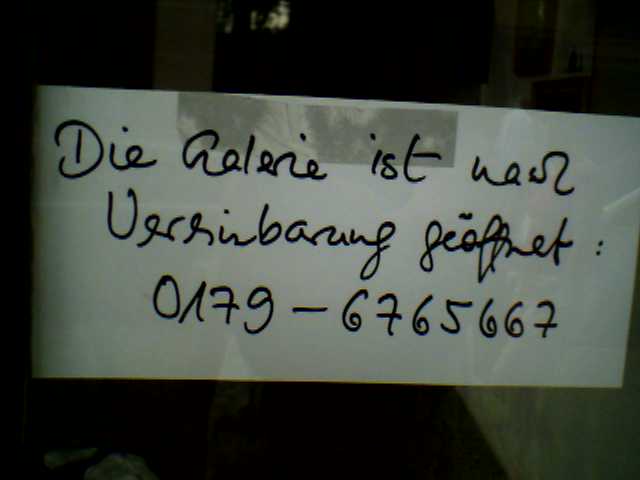 Die Galerie ist nach
Vereinbarung geöffnet:
0179-6765667